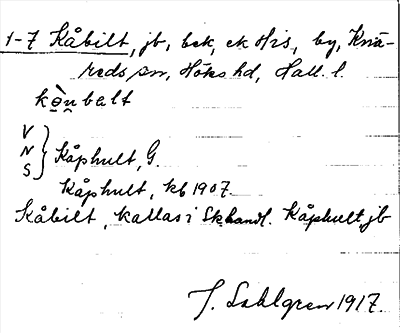 1-7 Kåbilt, jb, bek, ek His, by, Knä-
reds sn, Höks hd, Hall. l.
V
N } Kåphult, G.
S
Kåphult, kb 1907.
Kåbilt, kallas i Skhandl. Kåphult, jb
J. Sahlgren 1917.